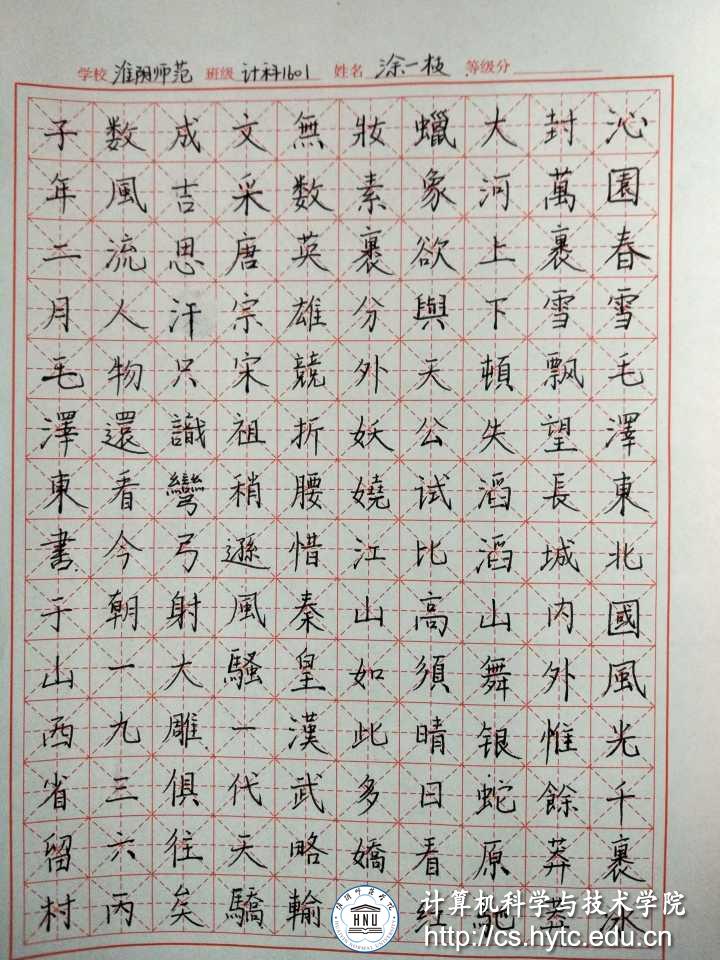 学校 淮阴师范 班级 计科1601 姓名 涂一枝 等级分
沁園春雪毛澤東北國風光千裹冰
封萬裹雪飄望長城内外惟餘莽莽
大河上下頓失滔滔山舞银蛇原馳
蠟象欲與天公试比高須晴日看红
妝素裹分外妖嬈江山如此多嬌
無数英雄競折腰惜秦皇漢武略輸
文采唐宗宋祖稍遜風騷一代天驕
成吉思汗只識彎弓射大雕俱往矣
数風流人物還看今朝一九三六丙
子年二月毛澤東書于山西省留村
HNU
计算机科学与技术学院
http://cs.hytc.edu.cn